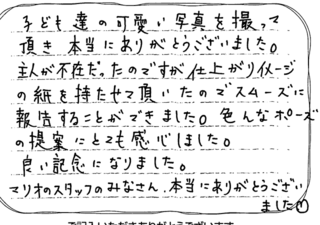 子ども達の可愛い写真を撮って
頂き本当にありがとうございました。
主人が不在だったのですが仕上がりイメージ
の紙を持たせて頂いたのでスムーズに
報告することができました。色んなポーズ
の提案にとても感心しました。
良い記念になりました。
マリオのスタッフのみなさん、本当にありがとうござい
ました